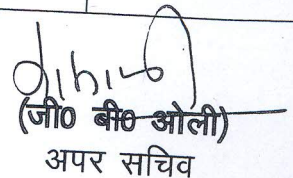 (जी0 बी0 ओली)
अपर सचिव